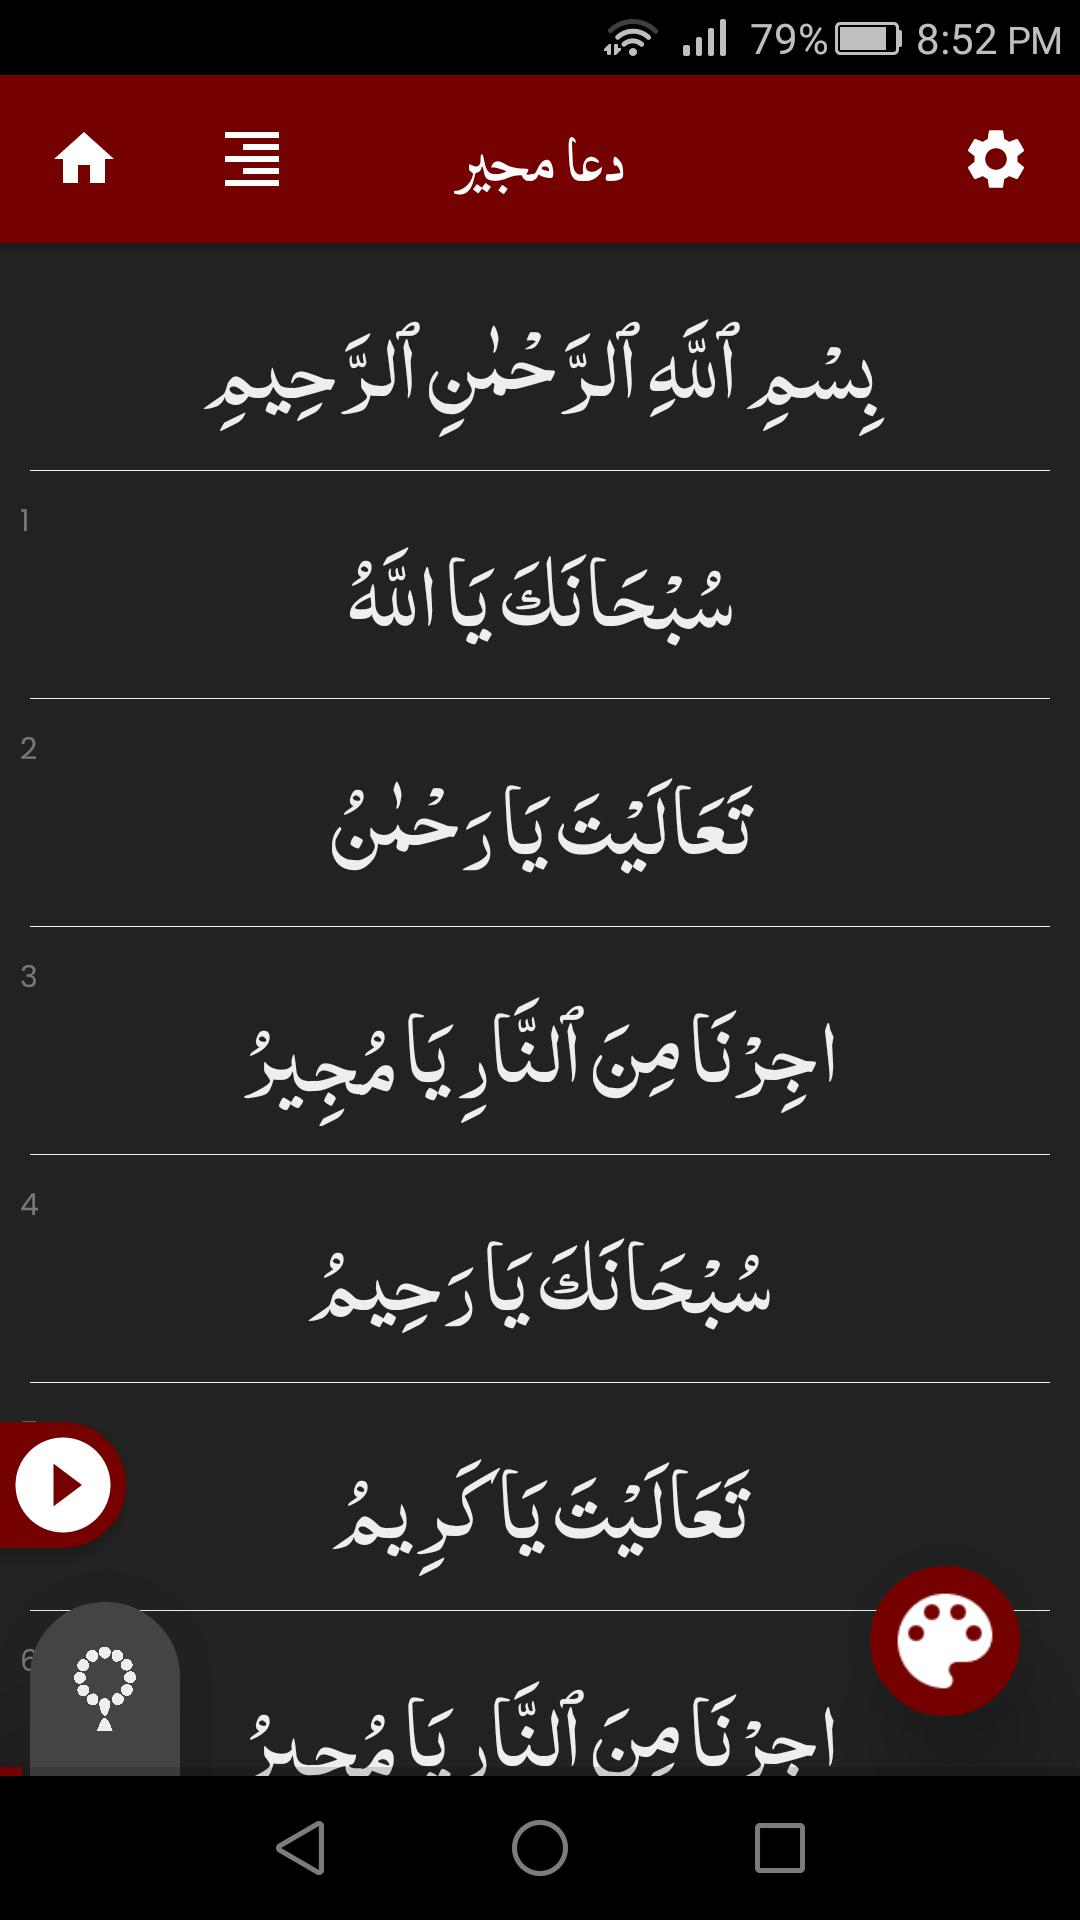 79% 8:52 PM
دعا مجیر
بِسْمِ ٱللَّهِ ٱلرَّحْمٰنِ ٱلرَّحِيمِ
1
سُبْحَانَكَ يَا اللَّهُ
2
تَعَالَيْتَ يَا رَحْمٰنُ
3
اجِرْنَا مِنَ ٱلنَّارِ يَا مُجِيرُ
4
سُبْحَانَكَ يَا رَحِيمُ
تَعَالَيْتَ يَا كَرِيمُ
6
اجِرْنَا مِنَ ٱلنَّارِ يَا مُجِيرُ